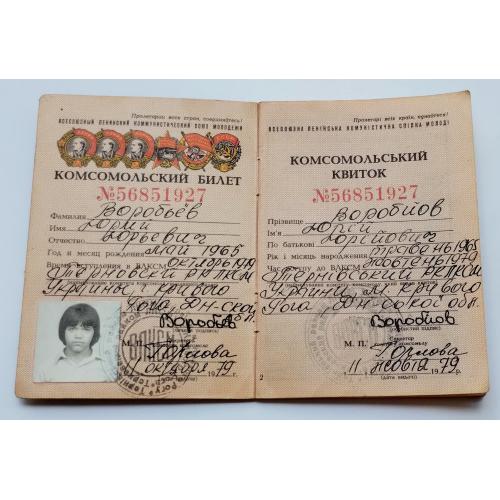 Пролетарии всех стран, соединяйтесь!
ВСЕСОЮЗНЫЙ ЛЕНИНСКИЙ КОММУНИСТИЧЕСКИЙ СОЮЗ МОЛОДЕЖИ
КОМСОМОЛЬСКИЙ БИЛЕТ
№56851927
Фамилия Воробьёв
Имя Юрий
Отчество Юрьевич
Год и месяц рождения май 1965
Время вступления в ВЛКСМ октябрь 1979
РК ЛКСМ
Украины г. Кривого
Рога
Воробьёв
Орлова
октября 1979 г.
Пролетарі всіх країн, єднайтеся!
ВСЕСОЮЗНА ЛЕНІНСЬКА КОМУНІСТИЧНА СПІЛКА МОЛОДІ
КОМСОМОЛЬСЬКИЙ
КВИТОК
№56851927
Прізвище Воробйов
Ім'я Юрій
По батькові Юрійович
Рік і місяць народження травень 1965
Час вступу до ВЛКСМ жовтень 1979
Тернівський РК ЛКСМ
України м. Кривого
Рога
Воробьёв
(особистий підпис)
Секретар
М. П. Орлова
11 жовтня 1979 р.
(дата видачі)
2